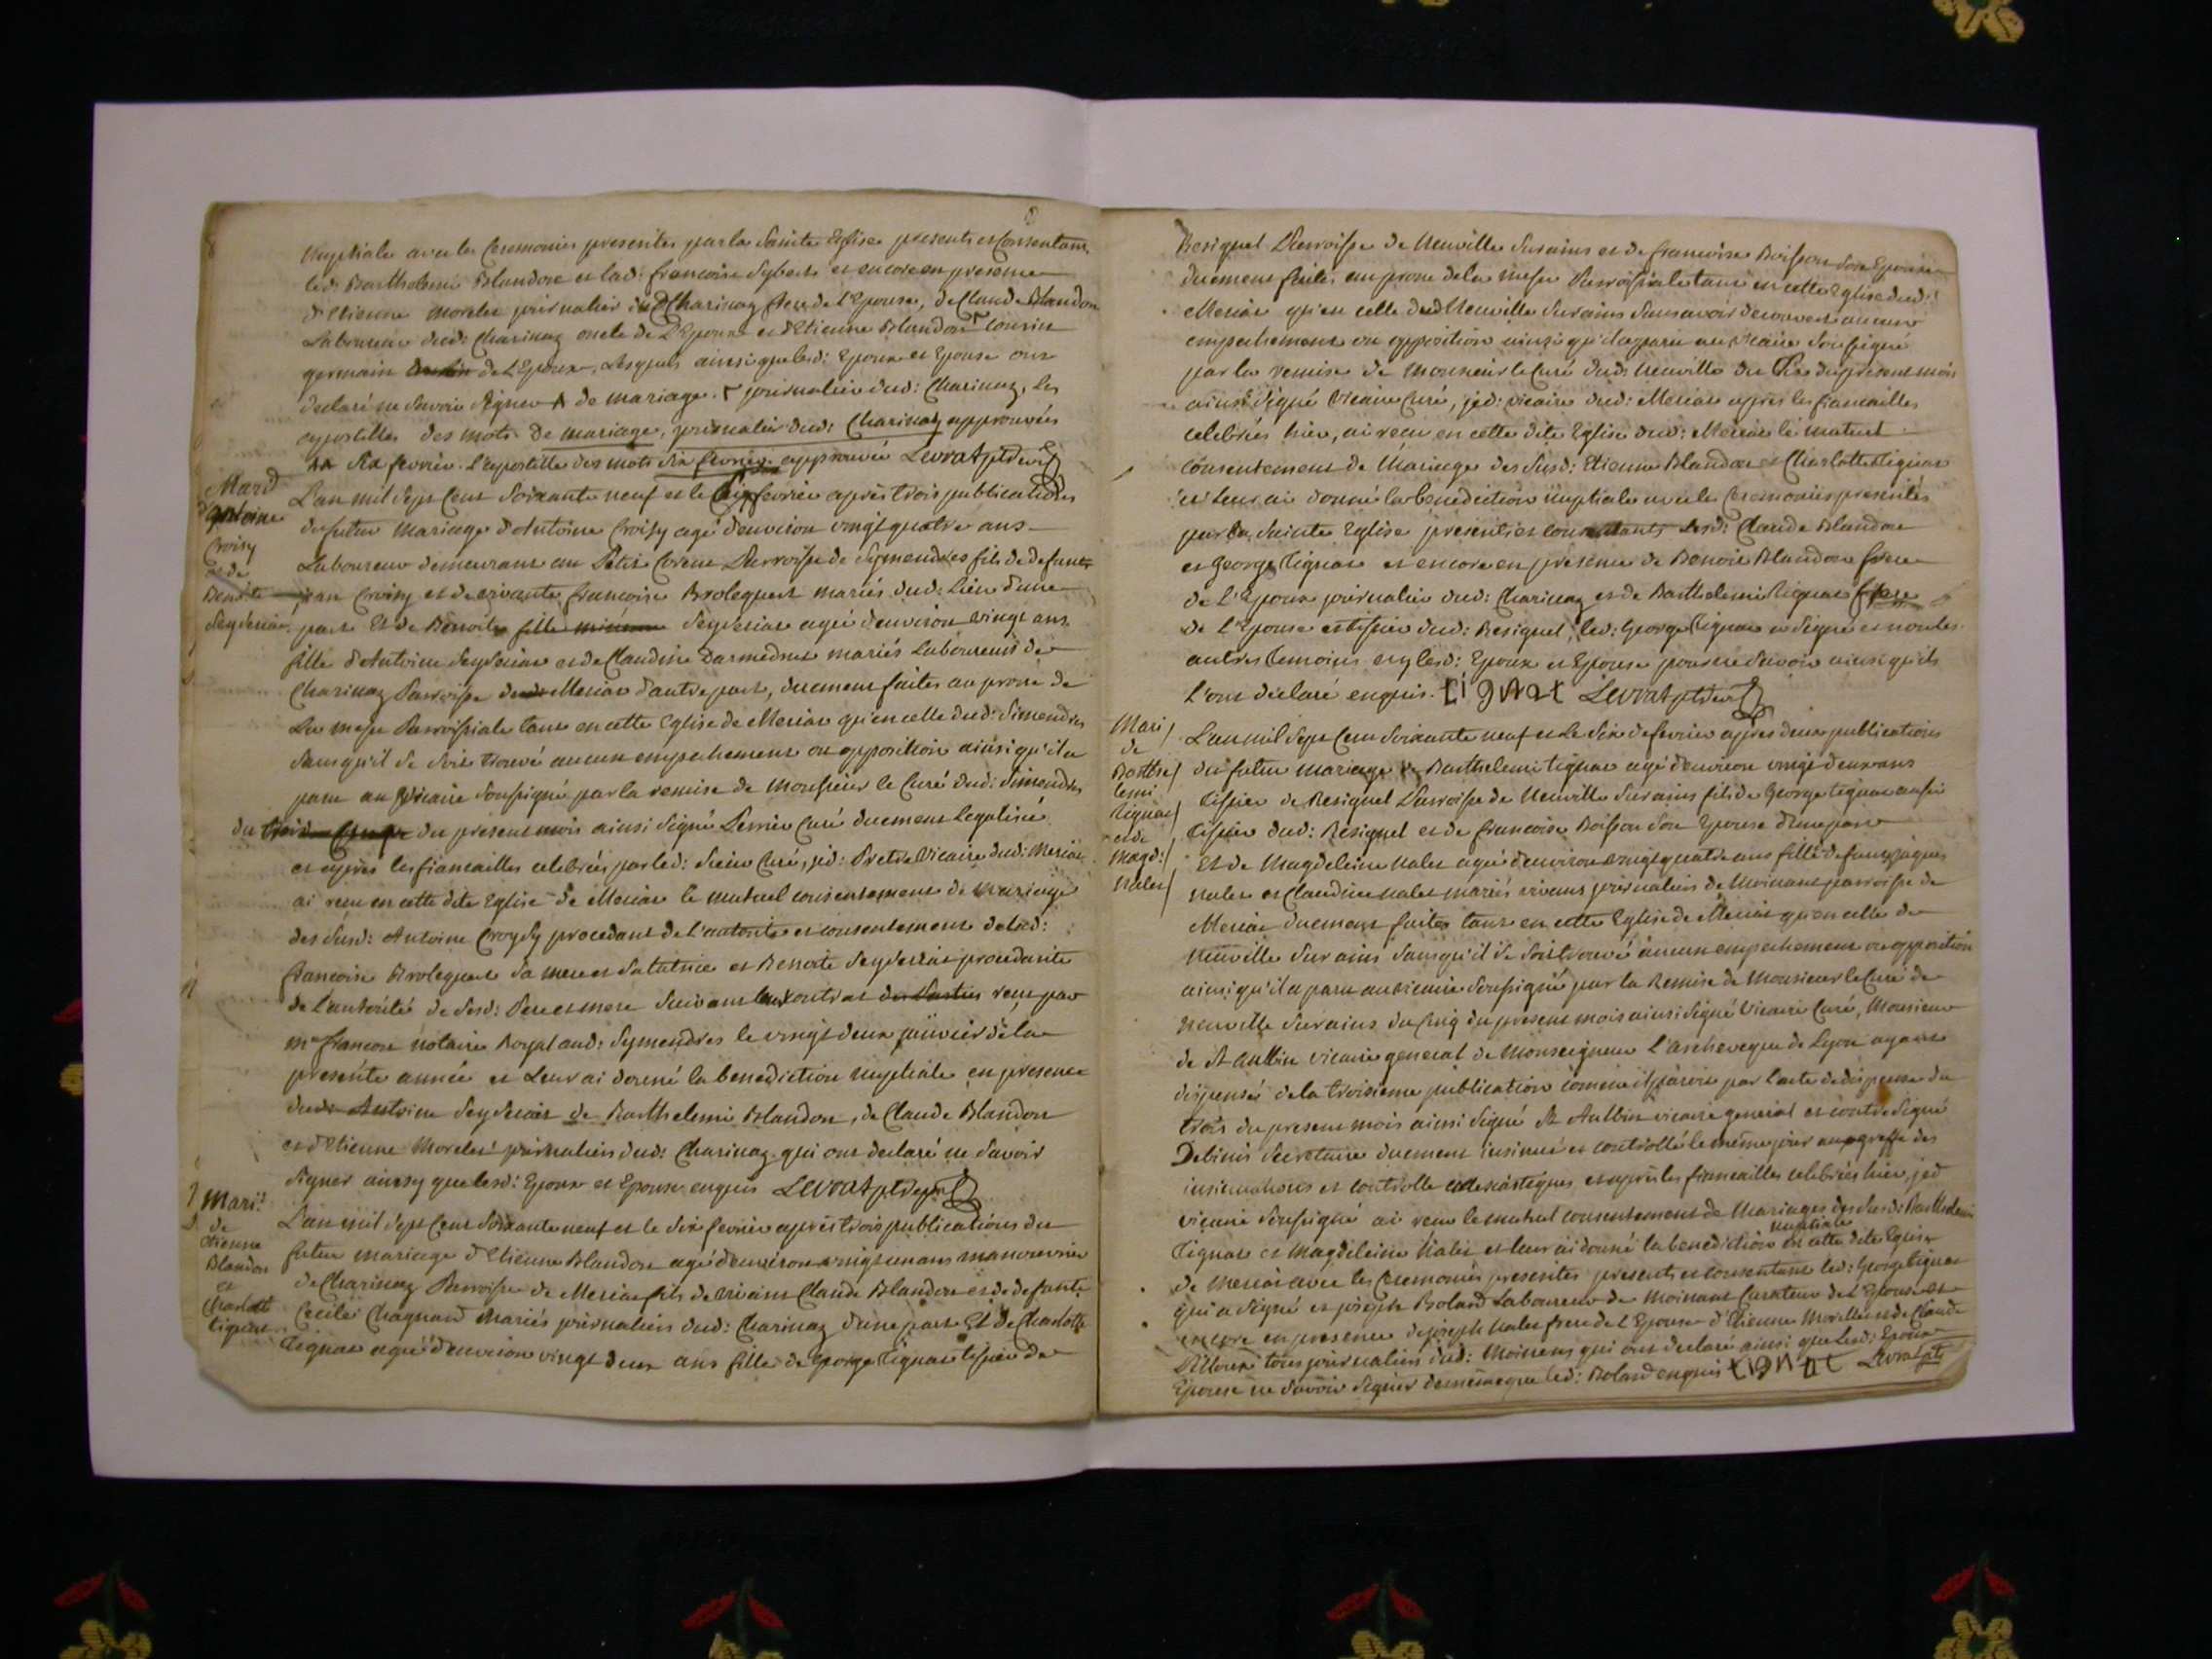 nuptiale avec les Ceremonies prescrites par la Sainte Eglise presents et Consentants
led: Barthelemi Blandon et lad: francoise Sybert et encore en presence
d'Etienne Morelet journalier dud: Charinaz frere de l'Epouse, de Claude Blandon
Laboureur dud: Charinaz oncle de l'Epoux et d'Etienne Blandon cousin
germain de l'Epoux, Lesquels ainsi que lesd: Epoux et Epouse ont
declaré ne Savoir Signer de mariage. journalier dud: Charinaz, les
apostilles des mots de mariage, journalier dud: Charinaz approuvées
Six fevrier. l'apostille des mots six fevrier approuvée Levrat ptre vic
Mari: d'Antoine Croisy et de Benoite Seyderiat
L'an mil Sept Cent Soixante neuf et le fevrier après trois publications
du futur Mariage d'Antoine Croisy agé d'environ vingt quatre ans
Laboureur demeurant au Petit Parroisse de Symendres fils de defunt
jean Croisy et de vivante francoise Brolequet mariés dud: Lieu d'une
part Et de Benoite fille mineure Seyderiat agée d'environ vingt ans
fille d'Antoine Seyderiat et de Claudine Darmednet mariés Laboureurs de
Charinaz Parroisse Meriat d'autre part, duement faites au prone de
La messe Parroissiale tant en cette Eglise de Meriat qu'en celle dud: Simendres
Sans qu'il Se Soit trouvé aucun empechement ou opposition ainsi qu'il a
paru au vicaire Soussigné par la remise de Monsieur le Curé dud: Simendres
du du present mois ainsi Signé Perrier Curé duement Legalisée
et après les fiancailles celebrées par led: Sieur Curé, jed: Pretre Vicaire dud: Meriat
ai recu en cette dite Eglise de Meriat le mutuel consentement de mariage
des Susd: Antoine Croysy procedant de l'autorité et consentement de lad:
francoise Brolequet Sa mere et Sa tutrice et Benoite Seyderiat procedante
de l'autorité de Sesd: Pere et mere Suivant contrat recu par
me francon notaire Royal aud: Symendres le vingt deux janvier de la
presente année et Leur ai donné la benediction nuptiale en presence
dud: Antoine Seyderiat de Barthelemi Blandon, de Claude Blandon
et d'Etienne Morelet journaliers dud: Charinaz qui ont declaré ne Savoir
Signer ainsy que lesd: Epoux et Epouse enquis Levrat ptre vic
Mari: de Etienne Blandon et Charlotte tignat
L'an mil Sept Cent Soixante neuf et le Six fevrier après trois publications du
futur mariage d'Etienne Blandon agé d'environ vingt un ans manouvrier
de Charinaz Parroisse de Meriat fils de vivant Claude Blandon et de defunte
Cecile Chagnard Mariés journaliers dud: Charinaz d'une part Et de Charlotte
Tignat agée d'environ vingt deux ans fille de George Tignat tissier de
Resignel Parroisse de Neuville Sur ains et de francoise Boisson Son Epouse
duement faites au prone de la messe Parroissiale tant en cette Eglise dud:
Meriat qu'en celle dud: Neuville Sur ains Sans avoir decouvert aucun
empechement ou opposition ainsi qu'il a paru au vicaire Soussigné
par la remise de Monsieur le Curé dud: Neuville du du present mois
ainsi Signé vicaire Curé, jed: vicaire dud: Meriat après les fiancailles
celebrées hier, ai recu en cette dite Eglise dud: Meriat le mutuel
consentement de Mariage des Susd: Etienne Blandon et Charlotte Tignat
et leur ai donné la benediction nuptiale avec les Ceremonies prescrites
par la Sainte Eglise presents et consentants Lesd: Claude Blandon
et George Tignat et encore en presence de Benoit Blandon frere
de l'Epoux journalier dud: Charinaz et de Barthelemi Tignat frere
de l'Epouse tissier dud: Resignel, led: George Tignat a Signé et non les
autres temoins ny lesd: Epoux et Epouse pour ne Savoir ainsi qu'ils
l'ont declaré enquis. tignat Levrat ptre vic
Mari: de Barthelemi Tignat et de Magd: Nalet
L'an mil Sept Cent Soixante neuf et Le Six de fevrier après deux publications
du futur mariage de Barthelemi tignat agé d'environ vingt deux ans
tissier de Resignel Parroisse de Neuville Sur ains fils de George tignat aussi
tissier dud: Resignel et de francoise Boisson Son Epouse d'une part
Et de Magdeleine Nalet agée d'environ vingt quatre ans fille de funt Jaques
Nalet et Claudine Nalet mariés vivans journaliers de Moinans parroisse de
Meriat duement faites tant en cette Eglise de Meriat qu'en celle de
Neuville Sur ains Sans qu'il Se Soit trouvé aucun empechement ou opposition
ainsi qu'il a paru au vicaire Soussigné par la Remise de Monsieur le Curé de
Neuville Sur ains du Cinq du present mois ainsi Signé Vicaire Curé, Monsieur
de St Aulbin vicaire general de Monseigneur l'archeveque de Lyon ayant
dispensé de la troisieme publication comme il paroit par l'acte de dispense du
trois du present mois ainsi Signé St Aulbin vicaire general et contre Signé
Debinis Secretaire duement insinué et controllé le meme jour au greffe des
insinuations et controlle eclesiastiques et après les fiancailles celebrées hier, jed:
vicaire Soussigné ai recu le mutuel consentement de Mariages des Susd: Barthelemi
Tignat et Magdeleine Nalet et leur ai donné la benediction nuptiale en cette dite Eglise
de Meriat avec les Ceremonies prescrites presents et consentant led: George tignat
qui a Signé et joseph Boland Laboureur de Moinans Curateur de l'Epouse et
encore en presence de joseph Nalet frere de l'Epouse d'Etienne Morelle et de Claude
tous journaliers dud: Moinens qui ont declaré ainsi que Led: Epoux
Epouse ne Savoir Signer de meme que led: Boland enquis tignat Levrat ptre